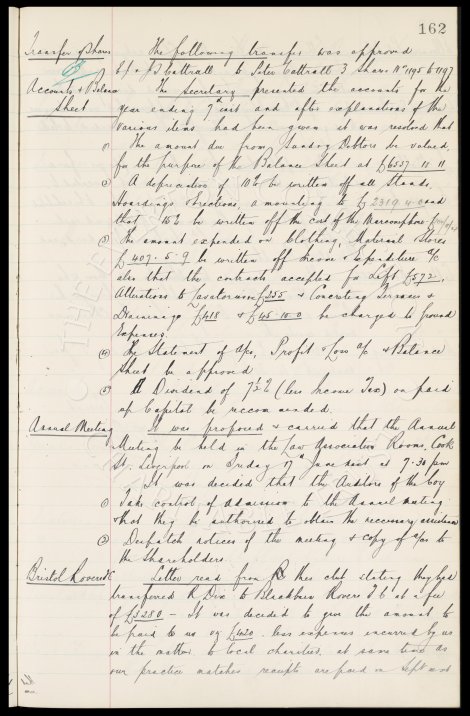 162
Transfer of Shares The following transfer was approved
Cattrall to Peter Cattrall 3 Shares Nos 1195 to 1197
Accounts & Balance The secretary presented the accounts for the
Sheet year ending 7th inst and after explanations of the
various items had been given it was resolved that
1) The amount due from Sundry Debtors be valued,
for the purpose of the Balance Sheet at £6537. 11. 11
2) A depreciation of 10% be written off all Stands,
Hoardings & Erections, amounting to £2319.4. and
that 15% be written off the cost of the Marconiphone
3) The amount expended on Clothing, Material Stores
£407. 5. 9 be written off Income & Expenditure a/c
also that the contracts accepted for Lift £572,
Alterations to Lavatories £255 & Concreting Terraces &
Drainage £418 & £45. 10. 0 be charged to Ground
Expenses.
4) The Statement of a/cs, Profit & Loss a/c & Balance
Sheet be approved
5) A Dividend of 7½% (less Income Tax) on paid
up Capital be recommended.
Annual Meeting It was proposed & carried that the Annual
Meeting be held in the Law Association Rooms, Cook
St. Liverpool on Friday 17th June next at 7.30 pm
It was decided that the Auditors of the Coy
1) Take control of admission to the Annual meeting
& that they be authorised to obtain the necessary assistance
2) Despatch notices of the meeting & copy of a/cs to
the Shareholders.
Bristol Rovers Letter read from this club stating they had
transferred R Dix to Blackburn Rovers F.C at a fee
of £3280 — It was decided to give the amount to
be paid to us £420. less expenses incurred by us
in the matter to local charities, at same time as
our practice matches receipts are paid in Sept next